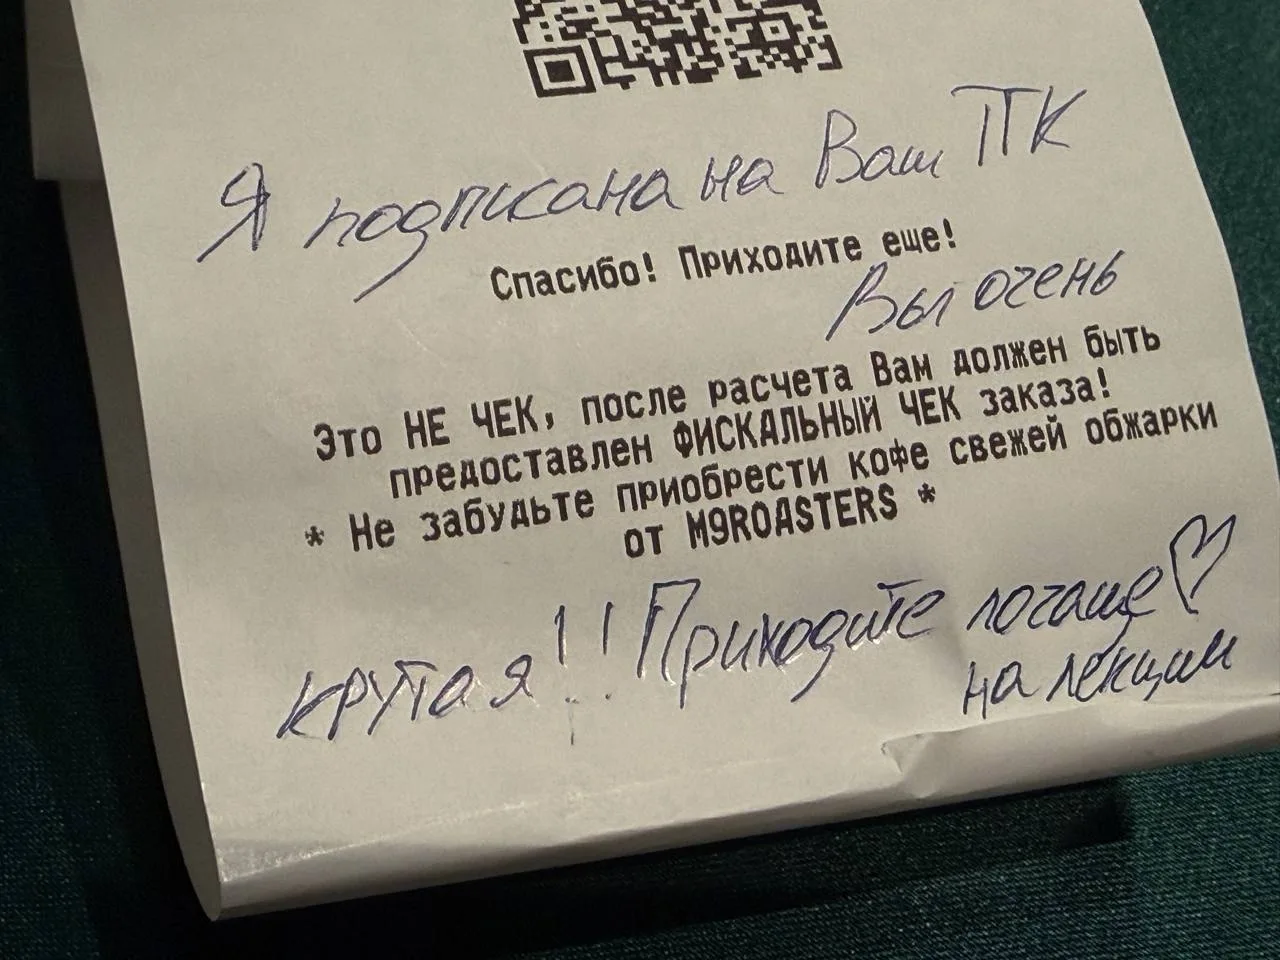 Я подписана на Ваш ПК
Спасибо! Приходите еще!
Вы очень
Это НЕ ЧЕК, после расчета Вам должен быть
предоставлен ФИСКАЛЬНЫЙ ЧЕК заказа!
* Не забудьте приобрести кофе свежей обжарки
от M9ROASTERS *
крутая!! Приходите почаще♡
на лекции